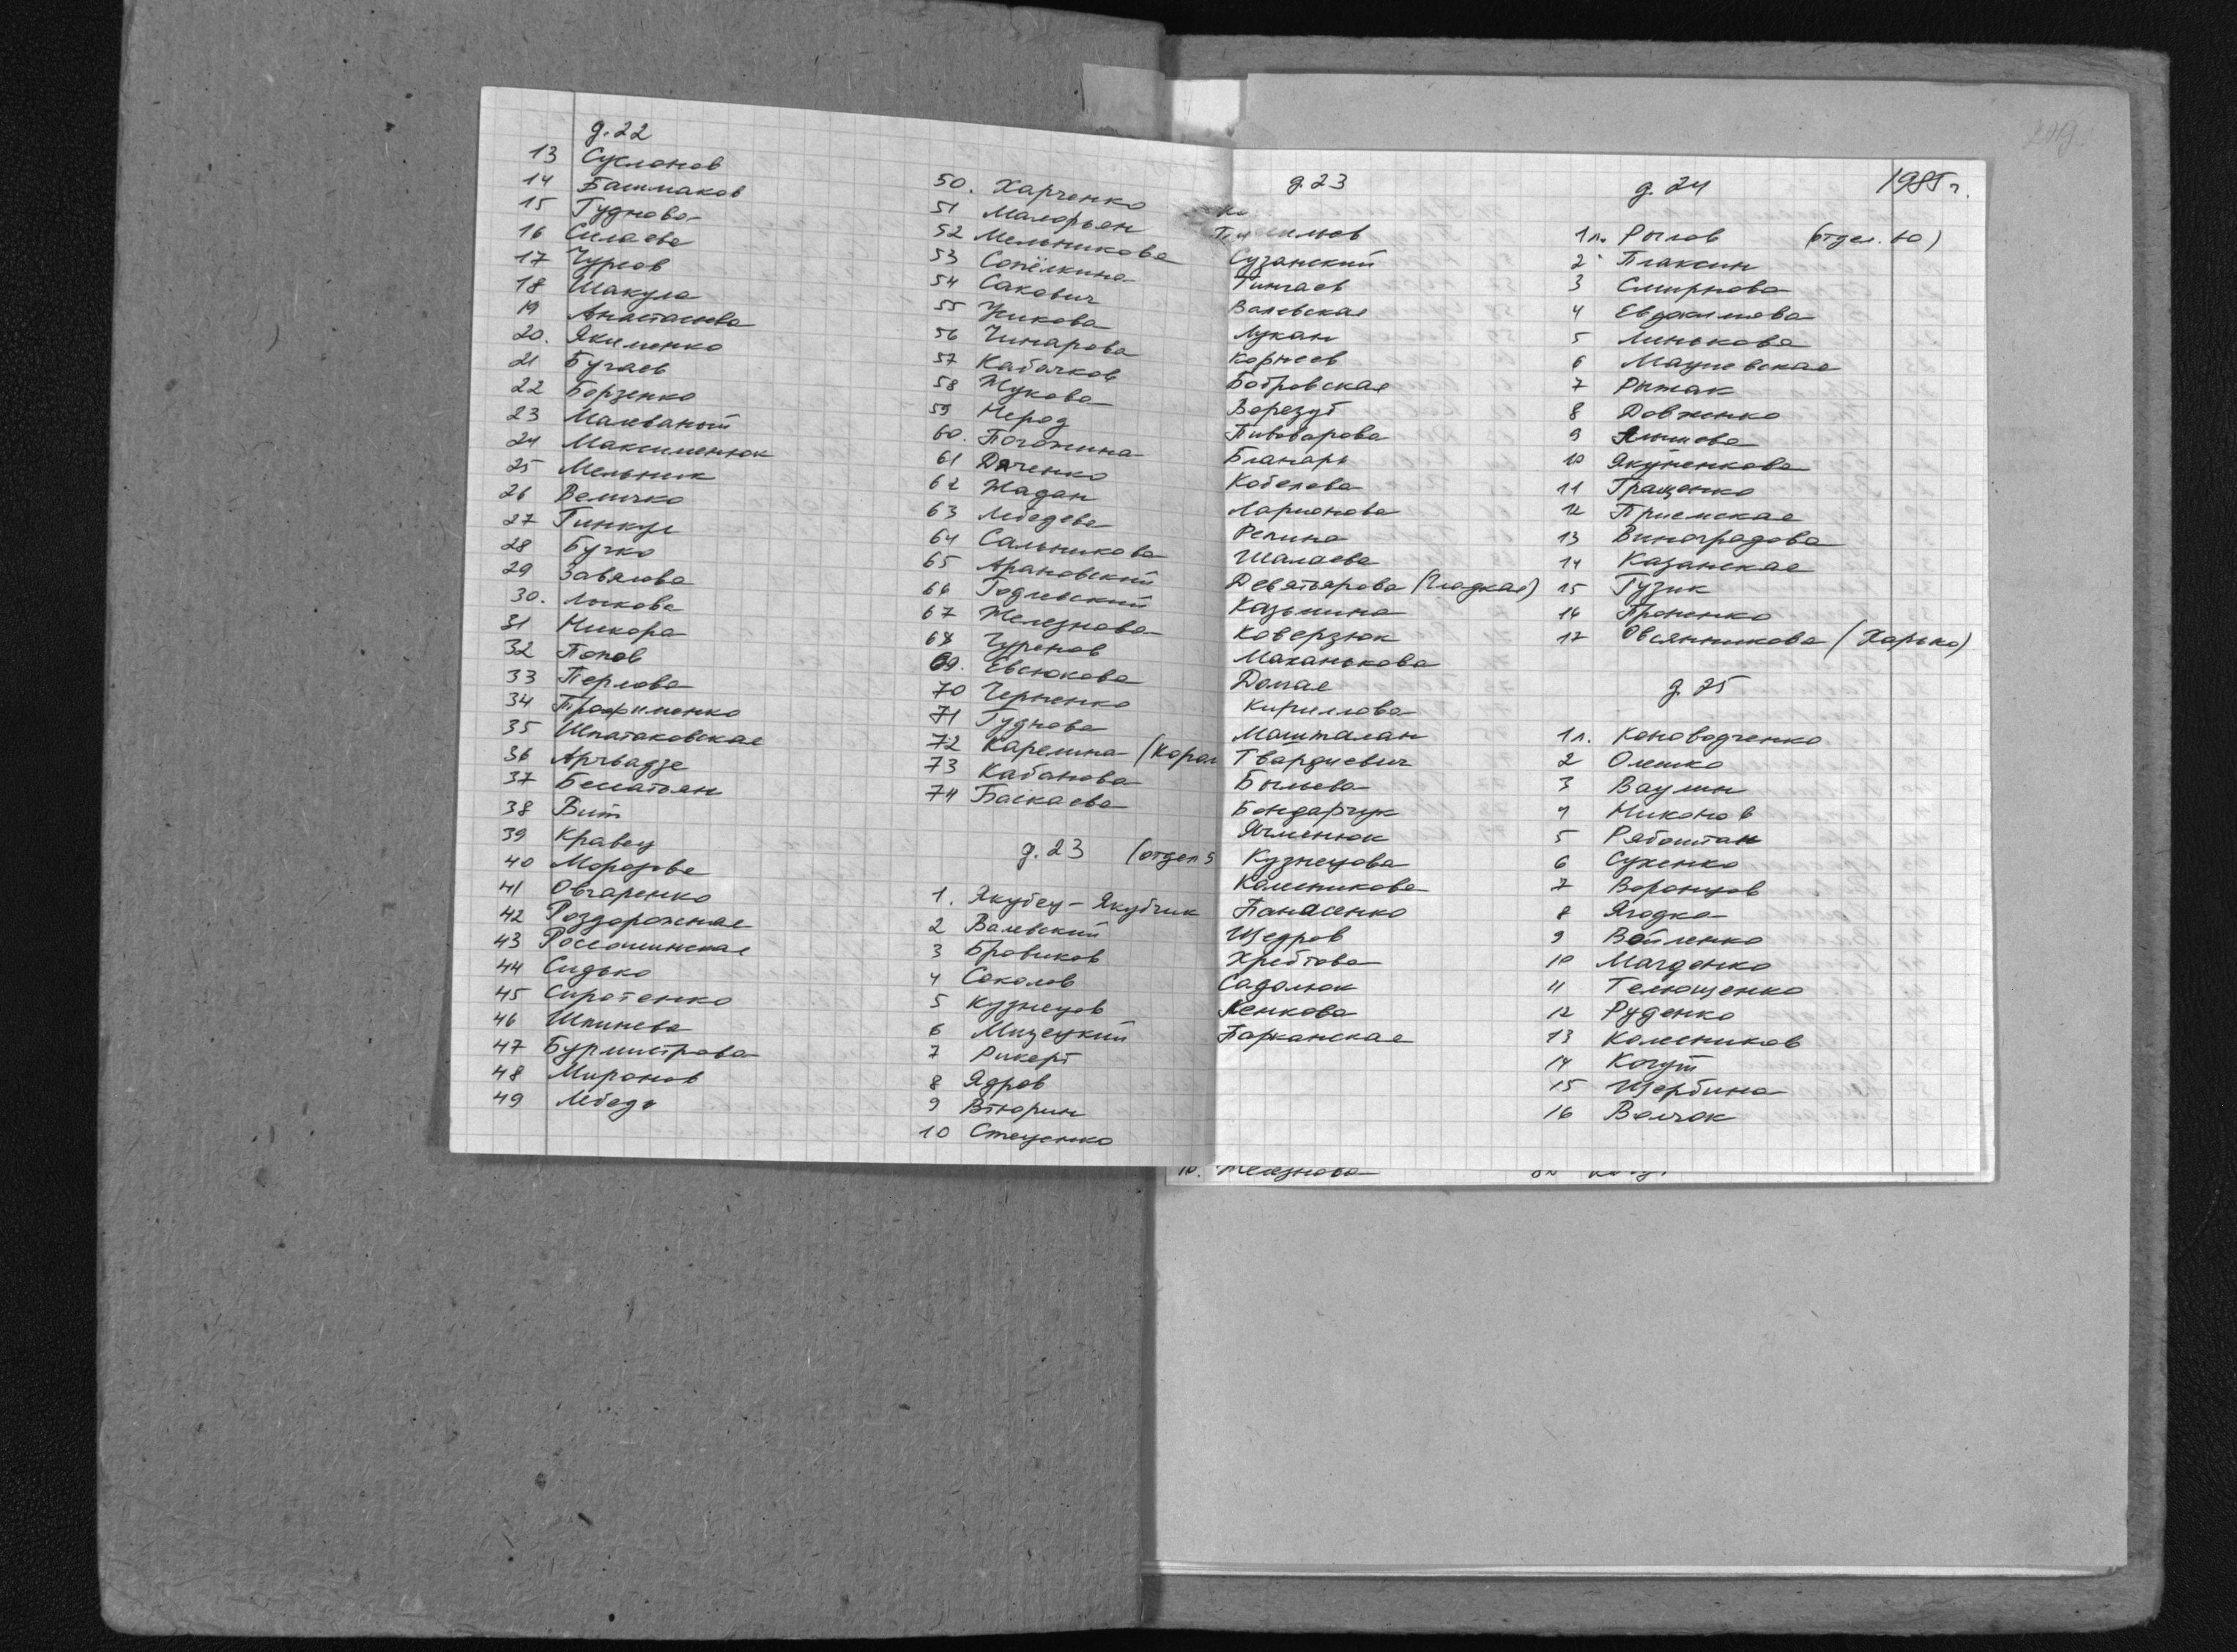 д. 22
13 Сусланов
14 Башмаков
15 Гуднова
16 Силаева
17 Чурсов
18 Шакула
19 Анастасиева
20. Якименко
21 Бугаев
22 Берзенко
23 Малеваный
24 Максименюк
25 Мельник
26 Величко
27 Гинкул
28 Бучко
29 Завялова
30. Лыкова
31 Никора
32 Попов
33 Перлова
34 Трофименко
35 Шпатаковская
36 Арчвадзе
37
38 Вит
39 Кравец
40 Морозова
41 Овчаренко
42 Роздорожная
43 Рослошинская
44 Сидько
45 Сиротенко
46 Шпинева
47 Бурмистрова
48 Миронов
49 Лебедь
50. Харченко
51 Малофьян
52 Мельникова
53 Сопёлкина
54 Сакович
55
56 Чинарова
57 Кабачков
58 Жукова
59 Нерод
60. Погонина
61 Дяченко
62 Жадан
63 Лебедева
64 Сальникова
65 Арановский
66 Годлевский
67 Железнова
68 Чуренов
69. Евсюкова
70 Черненко
71 Гуднова
72 Карелина (Корол
73 Кабанова
74 Баскаева
д. 23 (отдел 5
1. Якубец-Якубчик
2 Валевский
3 Бровиков
4 Соколов
5 Кузнецов
6 Мицецкий
7 Рикерт
8 Ядров
9 Втюрин
10 Стеценко
д. 23
Сузанский
Тингаев
Валевская
Лукан
Корнеев
Бобровская
Верезуб
Пивоварова
Бланарь
Кобелева
Ларионова
Репина
Шалаева
Девятьярова (Гладкая)
Казьмина
Коверзюк
Маханькова
Долая
Кириллова
Машталан
Твардиевич
Быльева
Бондарчук
Ячменюк
Кузнецова
Колесникова
Панасенко
Щедров
Хребтова
Садолюк
Ленкова
Парканская
д. 24 1985 г.
1 л. Рылов (отдел. 10)
2 Плаксин
3 Смирнова
4 Евдокимова
5 Линькова
6 Мацуевская
7 Рытак
8 Довженко
9
10 Якуненкова
11 Гращенко
12 Приемская
13 Виноградова
14 Казанская
15 Гузик
16 Проненко
17 Овсянникова (Харько)
д. 25
1 л. Коноводченко
2 Олешко
3 Ваулин
4 Никонов
5 Рябоштан
6 Сухенко
7 Воронцов
8 Ягодка
9 Войленко
10 Магденко
11 Телющенко
12 Руденко
13 Колесников
14 Когут
15 Щербина
16 Волчок
10. Железнова